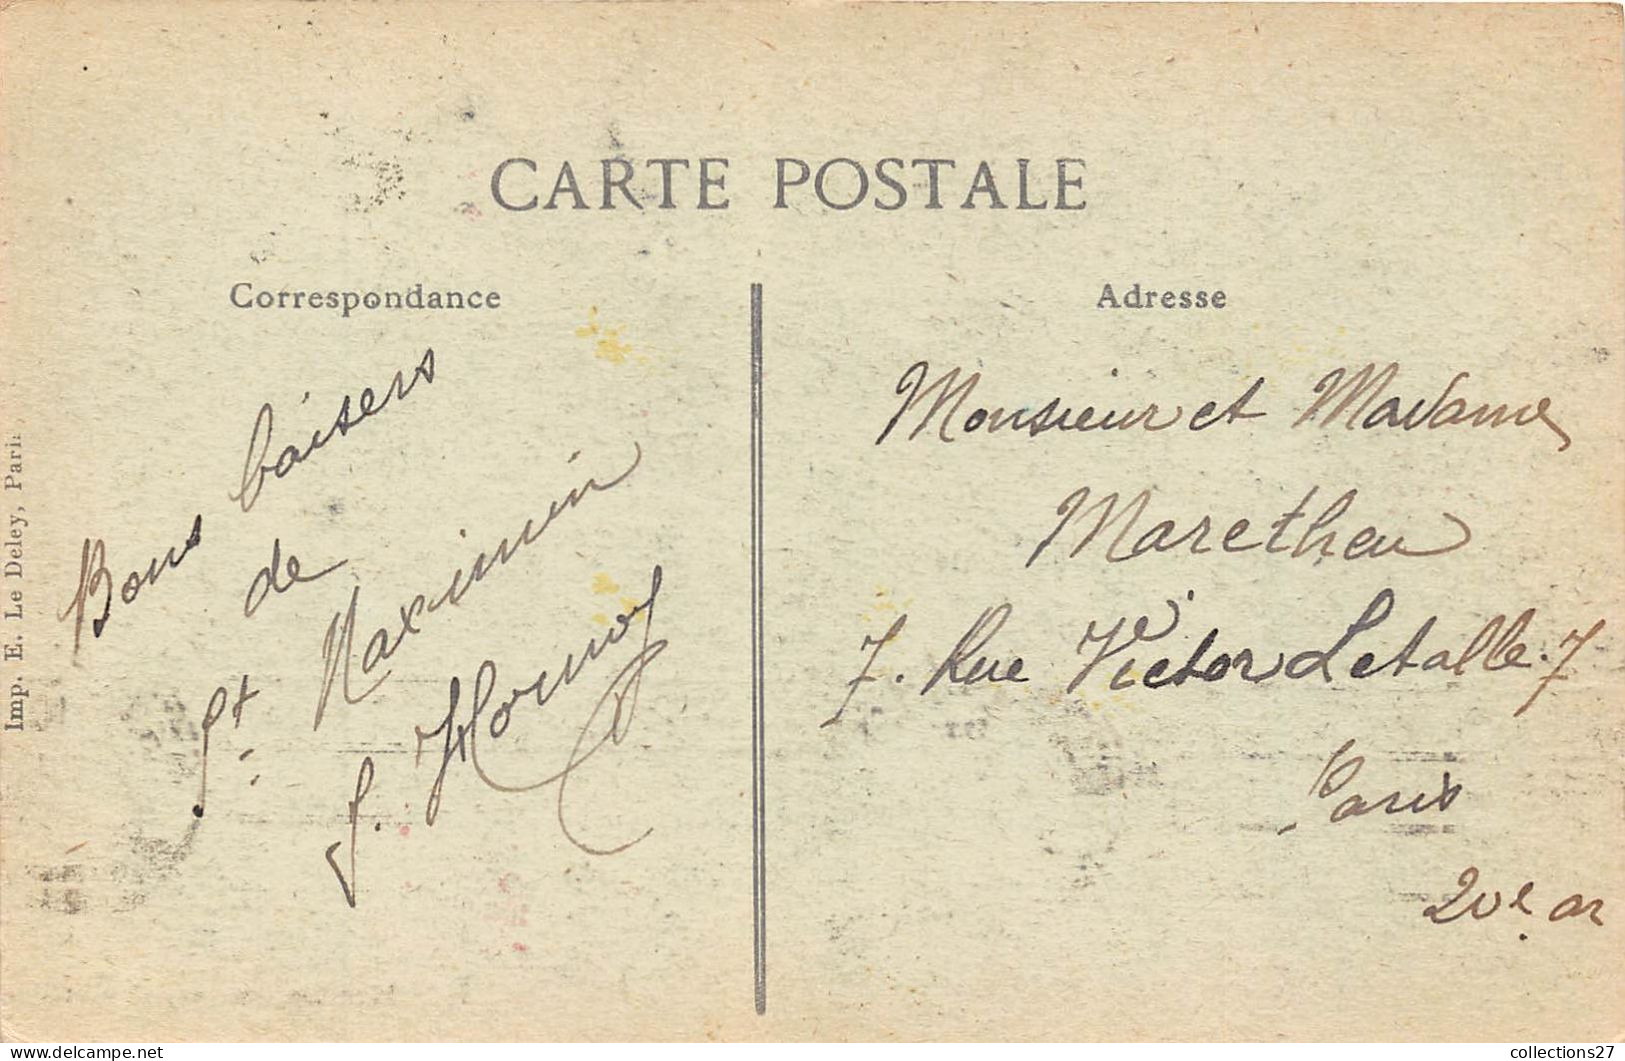 CARTE POSTALE
Correspondance
Bons baisers
de
St. Maximin
Adresse
Monsieur et Madame
Maretheu
7. Rue Victor Letalle. 7
Paris
20e ar
Imp. E. Le Deley, Paris
collections27